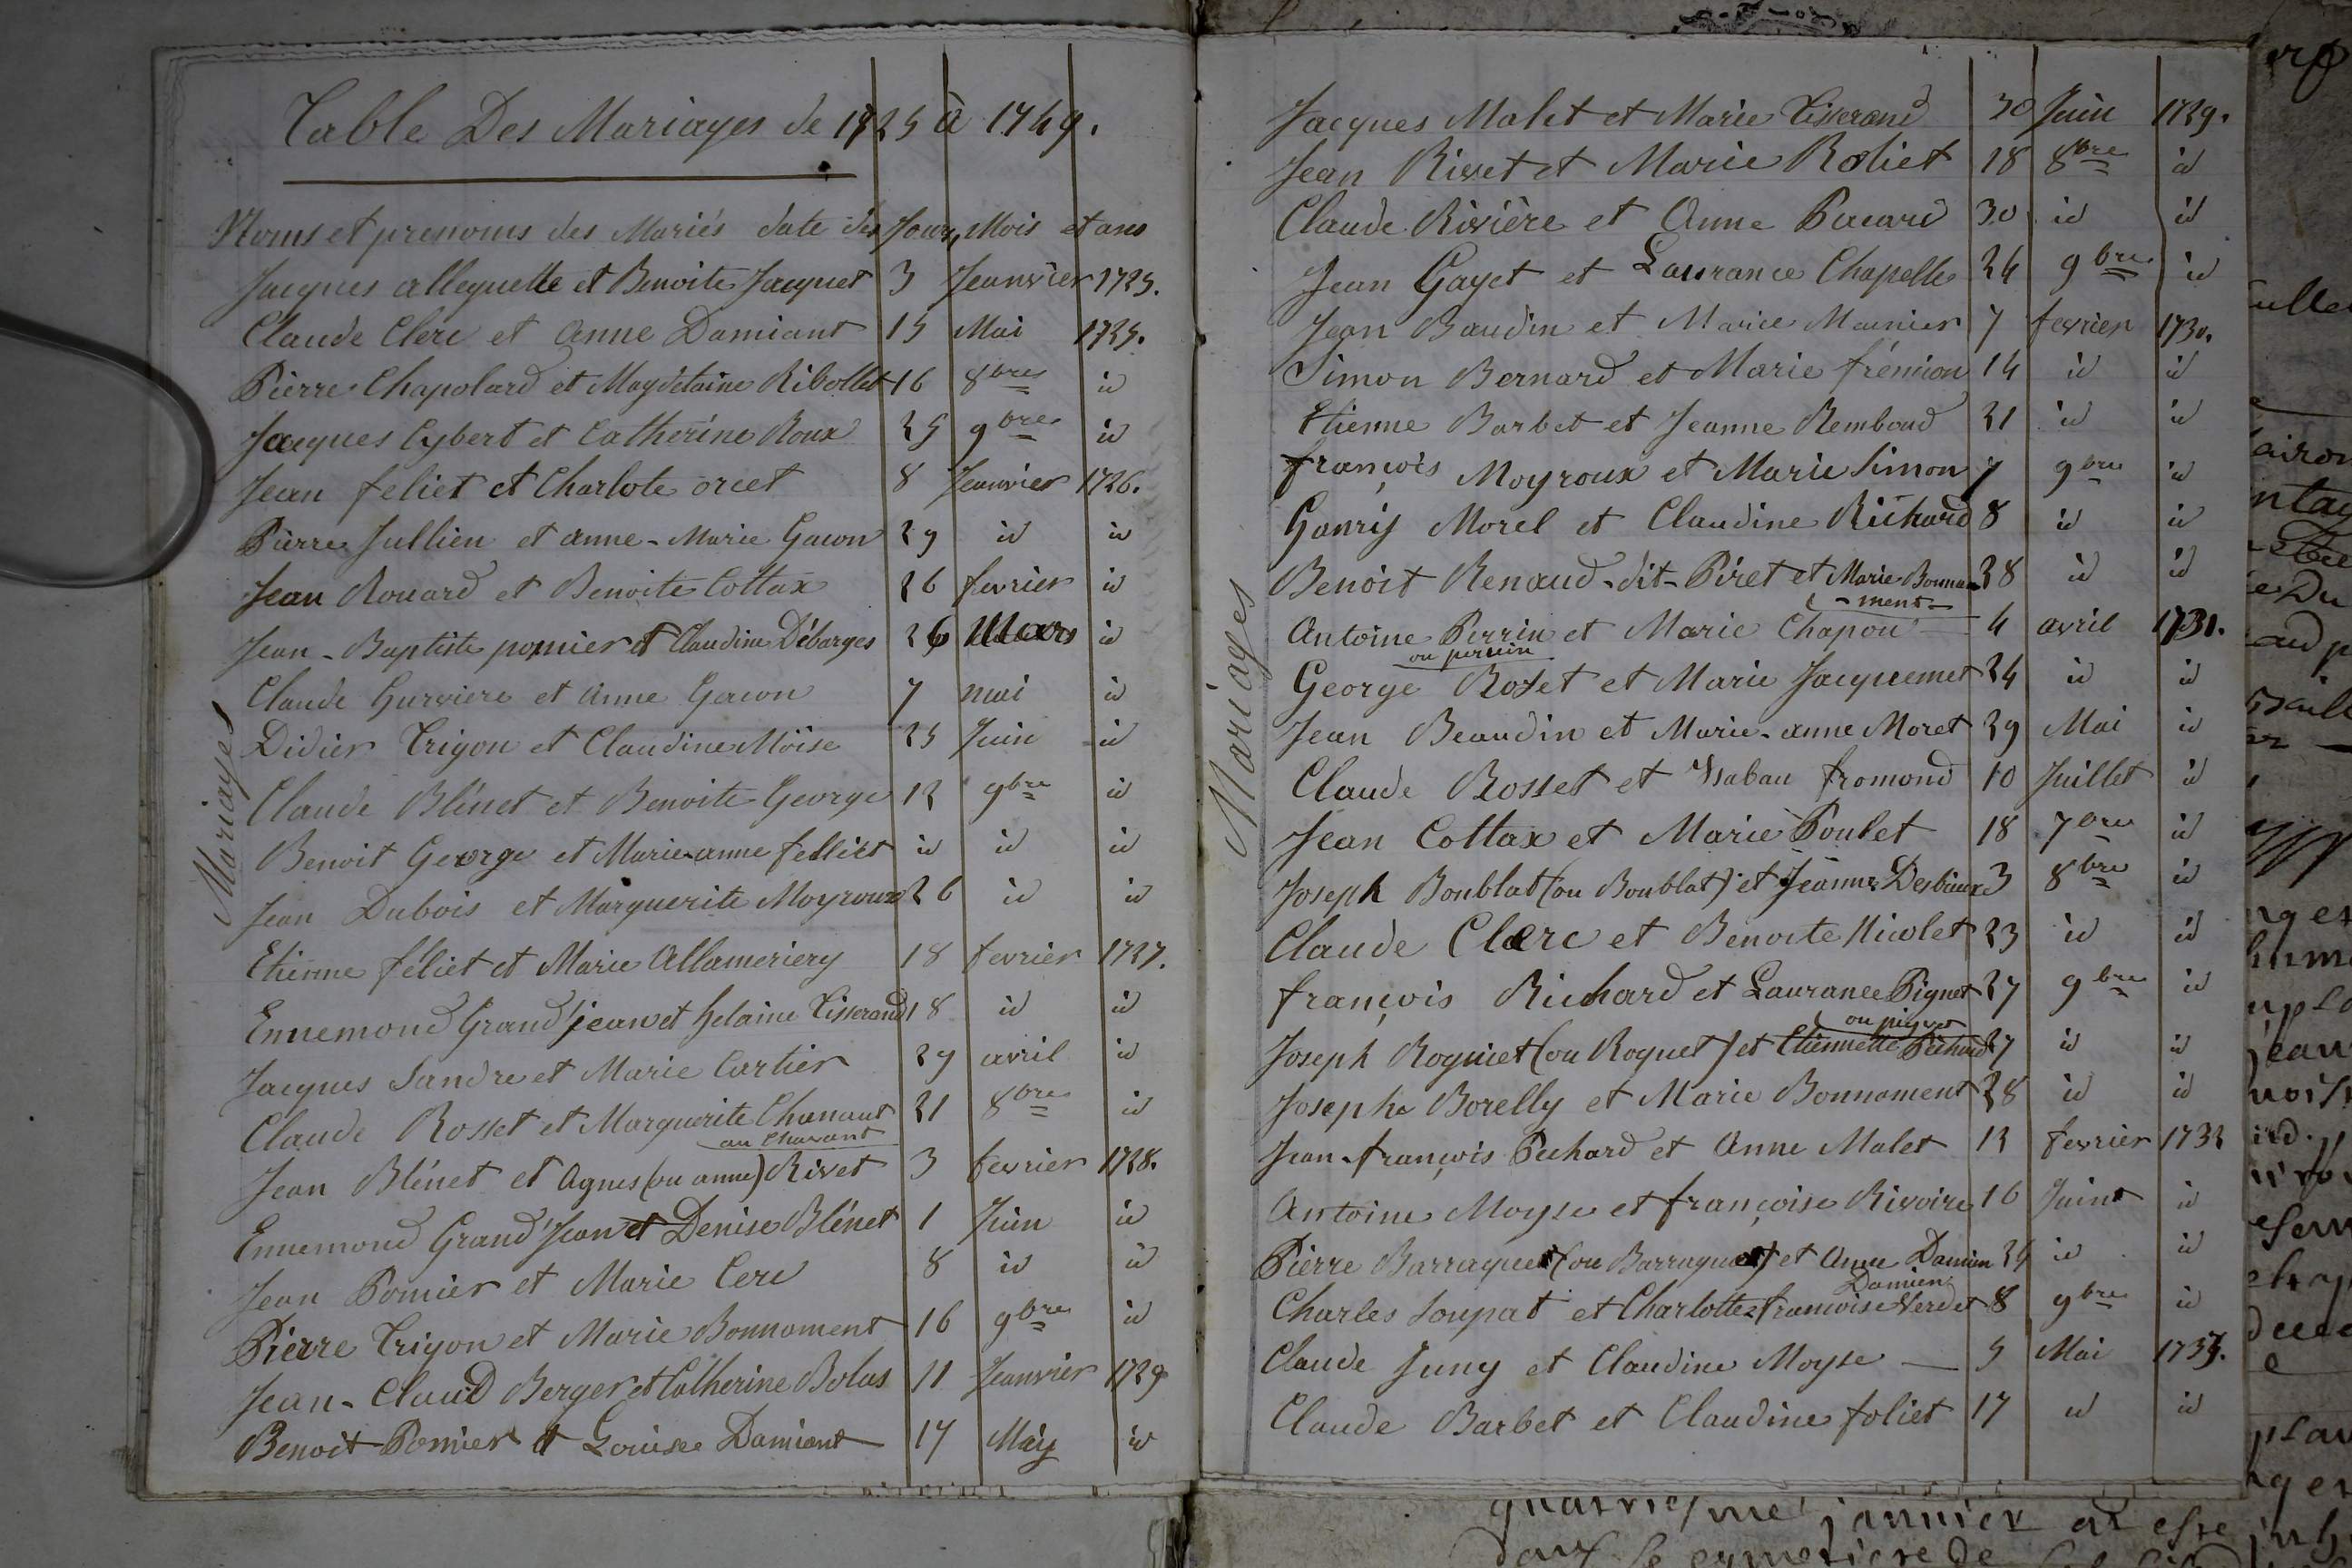 Table Des Mariages de 1725 à 1749.
Noms et prenoms des Mariés date des Jours, Mois et ans
Jacques alleguette et Benoite Jacquet 3 Jeanvier 1725.
Claude Clerc et Anne Damiant 15 Mai 1725.
Pierre Chapolard et Magdelaine Ribollet 16 8bre id
Jacques Cybert et Catherine Roux 25 9bre id
Jean feliet et Charlote orcet 8 Jeanvier 1726.
Pierre Jullien et anne-Marie Gacon 29 id id
Jean Rouard et Benoite Cottax 26 fevrier id
Jean-Baptiste pomier et Claudine Débarges 26 Mars id
Claude Gurviere et Anne Gacon 7 mai id
Didier Trigon et Claudine Moïse 25 Juin id
Claude Blénet et Benoite George 12 9bre id
Benoit George et Marie-anne felliet id id id
Jean Dubois et Marguerite Moyroux 26 id id
Etienne féliet et Marie Allameriery 18 fevrier 1727.
Ennemond Grand'jean et helaine Tisserand 18 id id
Jacques Sandre et Marie Cartier 29 avril id
Claude Rosset et Marguerite Chanaut 21 8bre id
ou Chavant
Jean Blénet et Agnes (ou anne) Rivet 3 fevrier 1728.
Ennemond Grand'Jean et Denise Blénet 1 Juin id
Jean Pomier et Marie Cerc 8 id id
Pierre Trigon et Marie Bonnament 16 9bre id
Jean-Claud Berger et Catherine Bolas 11 Jeanvier 1729
Benoit Pomier et Louise Damiant 17 May id
Mariages
Jacques Malet et Marie Tisserand 30 Juin 1729.
Jean Rivet et Marie Roliet 18 8bre id
Claude Rivière et Anne Pacard 30 id id
Jean Gayet et Laurance Chapelle 24 9bre id
Jean Baudin et Marie Meunier 7 fevrier 1730.
Simon Bernard et Marie frémion 14 id id
Etienne Barbet et Jeanne Rembaud 21 id id
françois Moyroux et Marie Simon 7 9bre id
Ganriy Morel et Claudine Richard 8 id id
Benoit Renaud-dit-Piret et Marie Bonna- 28 id id
-ment-
Antoine Perrin et Marie Chapon 4 avril 1731.
ou persin
George Roset et Marie Jacquemet 24 id id
Jean Beaudin et Marie-anne Moret 29 Mai id
Claude Rosset et Isabau fromond 10 Juillet id
Jean Cottax et Marie Poulet 18 7bre id
Joseph Bonblat (ou Boublat) et Jeanne Desbieux 3 8bre id
Claude Clerc et Benoite Nicolet 23 id id
françois Richard et Laurance Pignet 27 9bre id
ou piguet
Joseph Rogniet (ou Roquet) et Etiennette Pichard 27 id id
Josephe Borelly et Marie Bonnament 28 id id
Jean-françois Pichard et Anne Malet 12 fevrier 1732
Antoine Moyse et françoise Rivoire 16 Juint id
Pierre Barraquet (ou Barraquat) et Anne Damien 24 id id
Damien
Charles Soupat et Charlotte-françoise Verdet 8 9bre id
Claude Juny et Claudine Moyse — 5 Mai 1733.
Claude Barbet et Claudine foliet 17 id id
Mariages